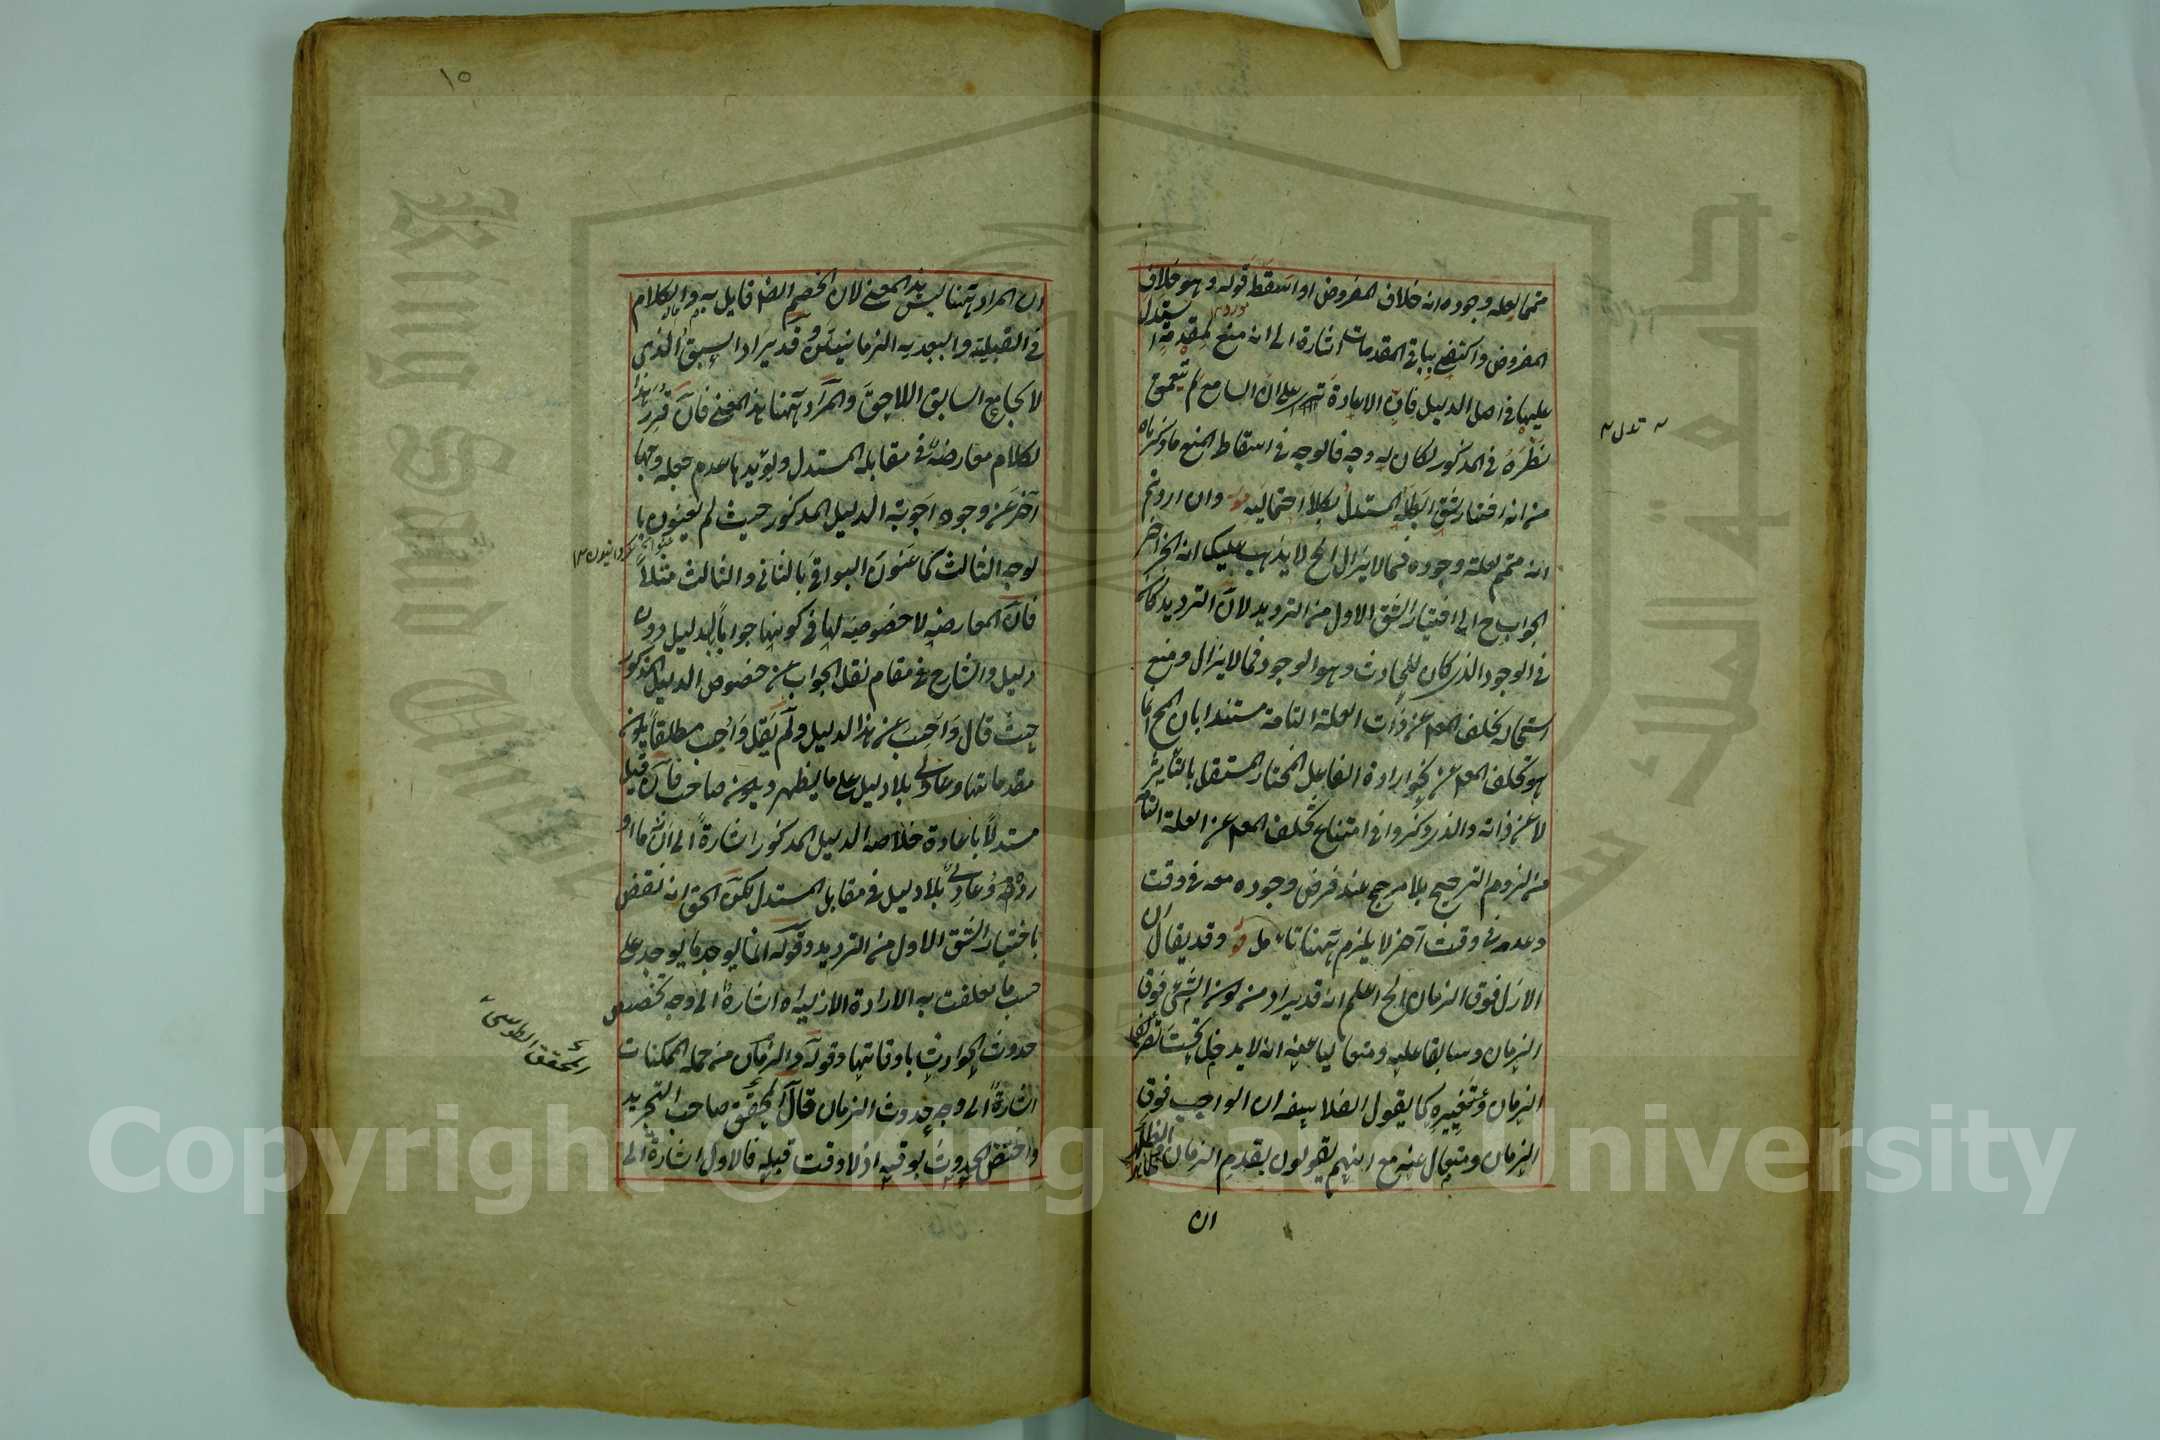 متمما لعلة وجوده انه خلاف المفروض او اسقط قوله وهو خلاف
المفروض واكتفى بباقى المقدمات اشارة الى انه منع لمقدمة استدل
عليها فى اصل الدليل فان الاعادة على ان السامع لم يتعمق
نظره فى المذكور لكان له وجه فالوجه فى اسقاط المنع ما ذكرناه
من انه اختار شق ابطله المستدل بكلا احتماليه قوله وان اردتم
انه متمم لعلة وجوده فيما لا يزال الخ لا يذهب عليك انه انجر اخر
الجواب ح الى اختيار الشق الاول من الترديد لان الترديد كان
فى الوجود الذى كان للحادث وهو الوجود فيما لا يزال ومنع
استحالة تخلف المعلول عن ذات العلة التامة مستندا بان المحال انما
هو تخلف المعلول عن نحو ارادة الفاعل المختار المستقل بالتأثير
لا عن ذاته والذى ذكروا فى امتناع تخلف المعلول عن العلة التامة
من لزوم الترجيح بلا مرجح عند فرض وجوده معه فى وقت
وعدمه فى وقت آخر لا يلزم ههنا تامل قوله وقد يقال ان
الازل فوق الزمان الخ اعلم انه قد يراد من كون الشئ فوق
الزمان وسابقا عليه ومتعاليا عنه انه لا يدخل تحت تصرف
الزمان وتغييره كما يقول الفلاسفة ان الواجب فوق
الزمان ومتعال عنه مع انهم يقولون بقدم الزمان
ان
بدل
١٥
ان المراد ههنا ليس هذا المعنى لان الخصم ايضا قايل به والكلام
فى القبلية والبعدية الزمانيتين وقد يراد السبق الذى
لا يجامع السابق اللاحق والمراد ههنا هذا المعنى فان قرر هذا
لكلام معارضة فى مقابلة المستدل ويؤيدها عدم جعله وجها
آخر من وجوه اجوبة الدليل المذكور حيث لم يعنون با
لوجه الثالث كما عنون البواقى بالثانى والثالث مثلا
فان المعارضة لا خصوصية لها فى كونها جوابا لدليل دون
دليل والشارح فى مقام نقل الجواب عن خصوص الدليل المذكور
حيث قال واجيب عن هذا الدليل ولم يقل واجيب مطلقا يكون
مقدماتها دعاوى بلا دليل على ما يظهر ويكون صاحب فان قيل
مستدلا باعادة خلاصة الدليل المذكور اشارة الى ان ما او
ردته دعاوى بلا دليل فى مقابل المستدل لكن الحق انه نقض
باختيار الشق الاول من الترديد وقوله انما يوجد ما يوجد على
حسب ما تعلقت به الارادة الازلية اه اشارة الى وجه تخصيص
حدوث الحوادث باوقاتها وقوله والزمان من جملة الممكنات
اشارة الى وجه حدوث الزمان قال المحقق صاحب التجريد
واختص الحدوث بوقته اذ لا وقت قبله فالاول اشارة الى
المحقق الطوسى
King Saud University
جامعة الملك سعود
1957
Copyright © King Saud University